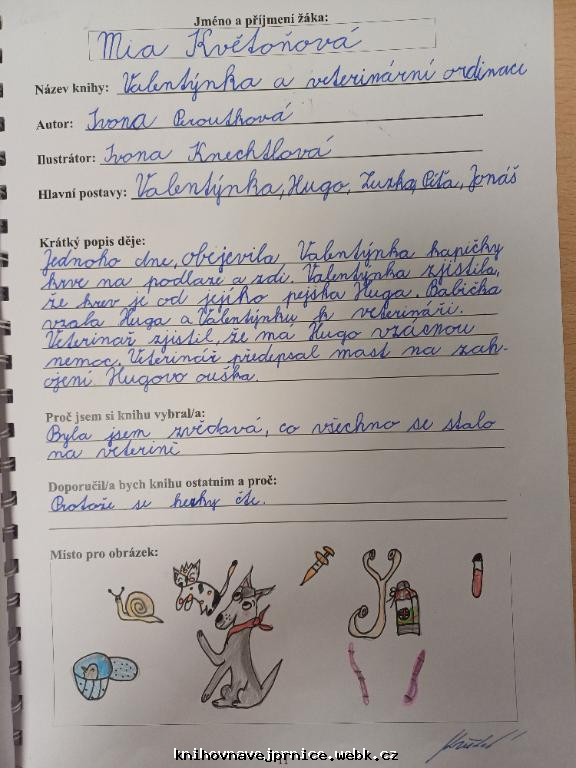 Jméno a příjmení žáka:
Mia Květoňová
Název knihy: Valentýnka a veterinární ordinace
Autor: Ivona Peroutková
Ilustrátor: Ivona Knechtlová
Hlavní postavy: Valentýnka, Hugo, Zuzka, Píťa, Jonáš
Krátký popis děje:
Jednoho dne, objevila Valentýnka kapičky
krve na podlaze a zdi. Valentýnka zjistila,
že krev je od jejího pejska Huga. Babička
vzala Huga a Valentýnku k veterináři.
Veterinař zjistil, že má Hugo vzácnou
nemoc. Veterinář předepsal mast na zah-
ojení Hugovo ouška.
Proč jsem si knihu vybral/a:
Byla jsem zvědavá, co všechno se stalo
na veterině
Doporučil/a bych knihu ostatním a proč:
Protože se hezky čte.
Místo pro obrázek:
11
knihovnavejprnice.webk.cz